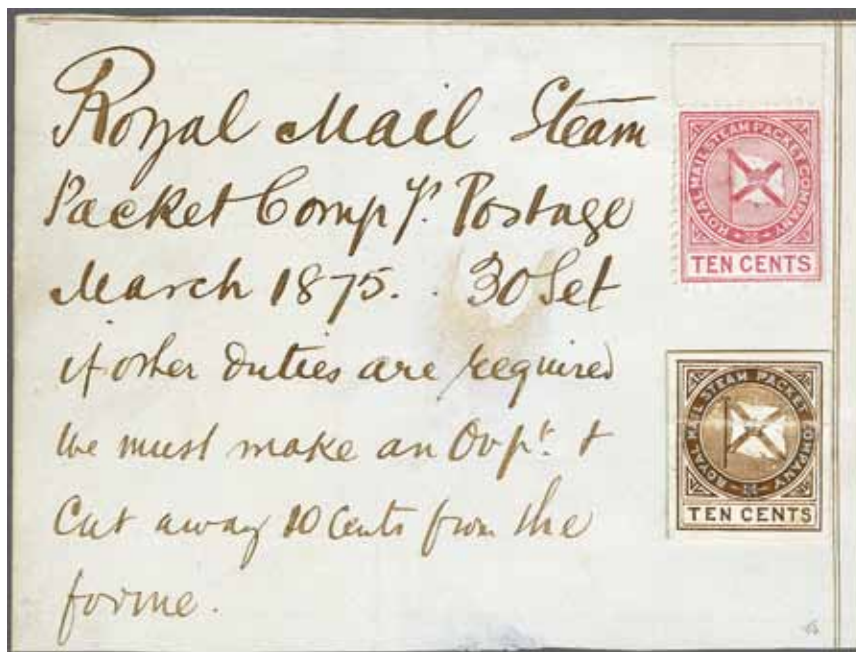 Royal Mail Steam
Packet Compy. Postage
March 1875. . 30 Set
if other duties are required
we must make an Ovpt. &
Cut away 10 Cents from the
forme.
ROYAL MAIL STEAM PACKET COMPANY
TEN CENTS
ROYAL MAIL STEAM PACKET COMPANY
TEN CENTS